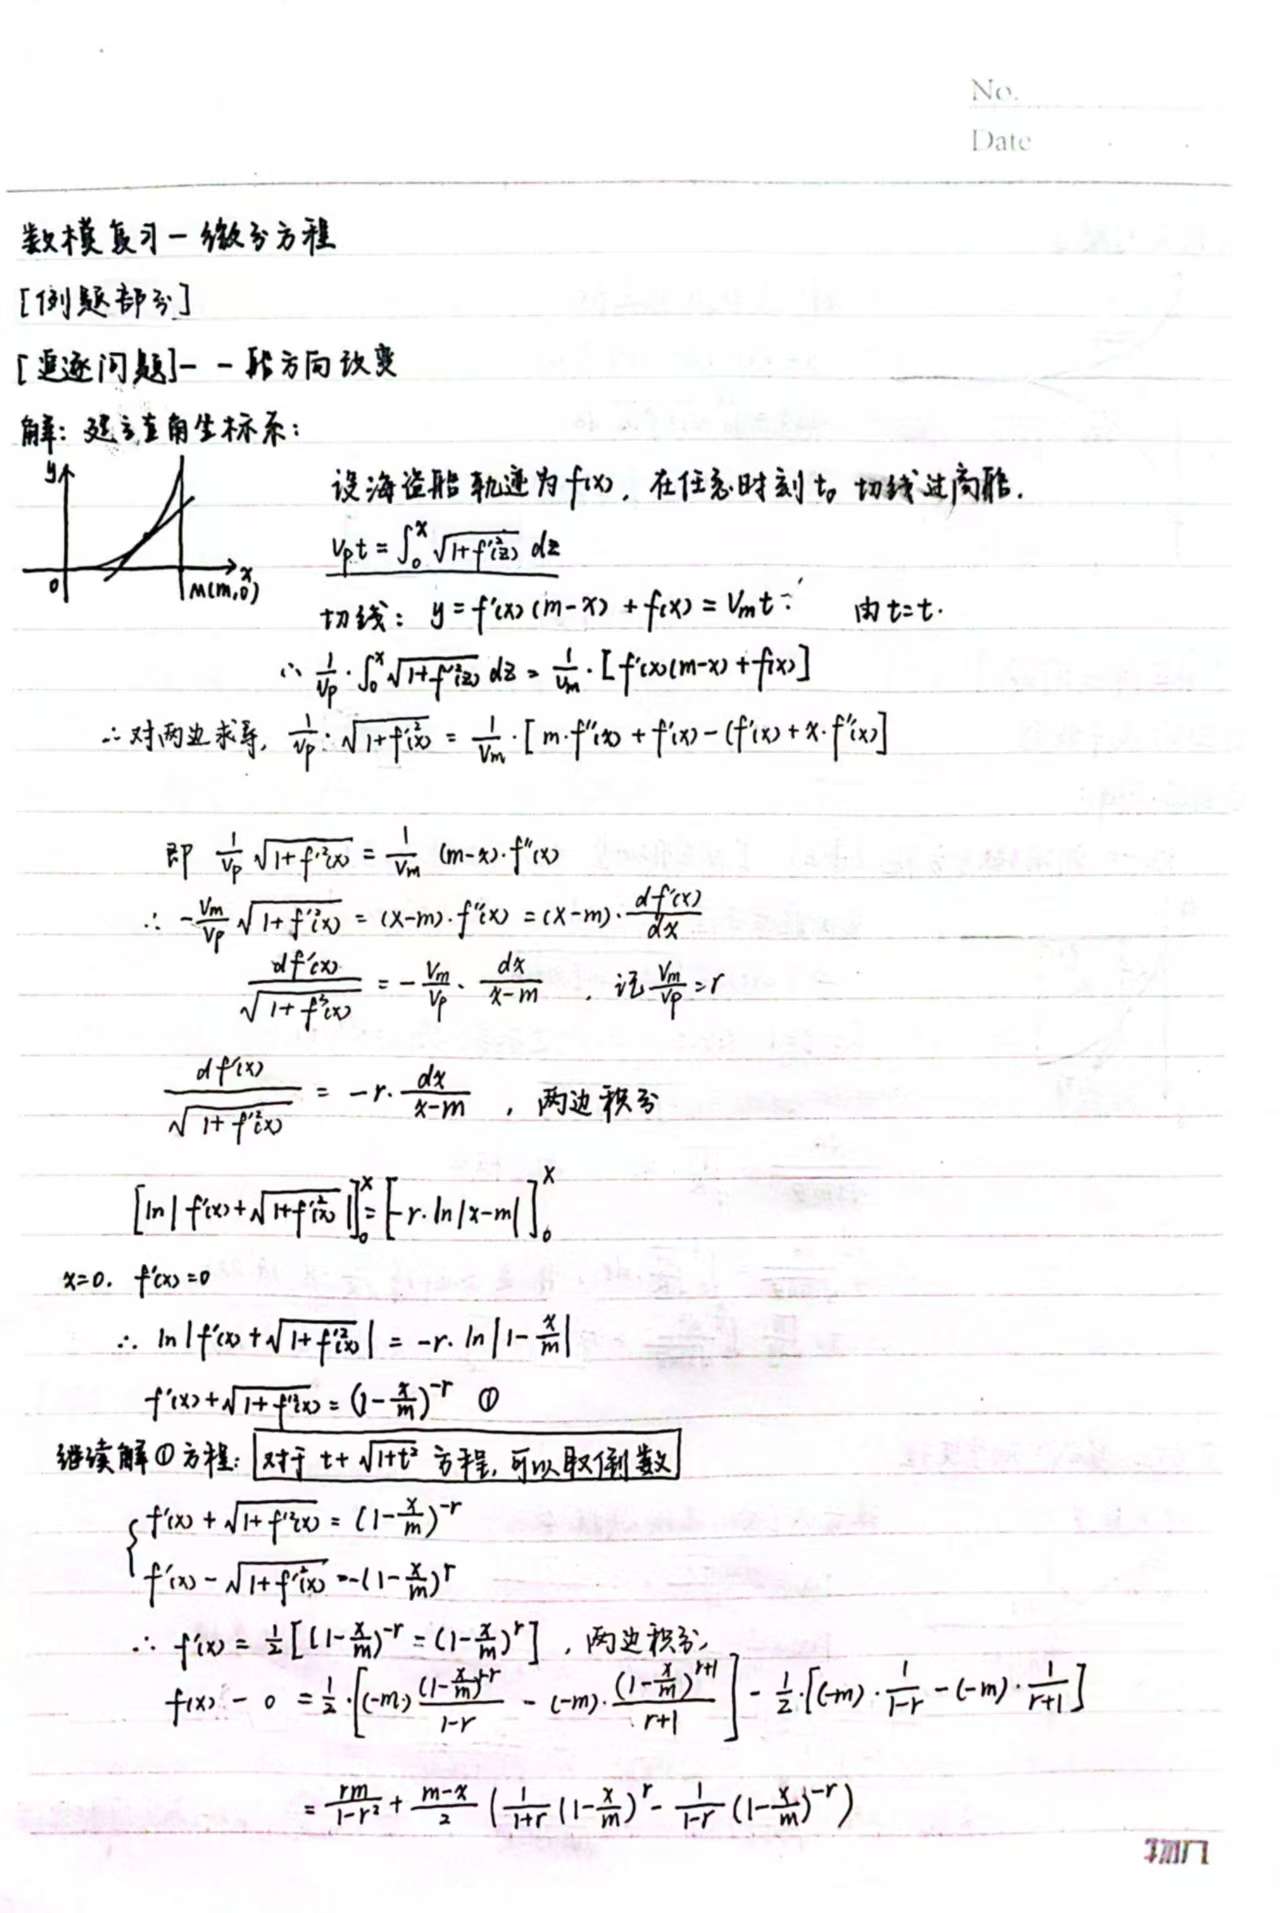 No.
Date
数模复习－微分方程
[例题部分]
[追逐问题]－－船方向改变
解：建立直角坐标系：
y
0
M(m,0)
x
设海盗船轨迹为f(x)，在任意时刻t。切线过商船.
Vpt = ∫₀ˣ √(1+f'²(z)) dz
切线：y = f'(x)(m-x) + f(x) = Vm t 由t=t.
∴ 1/Vp · ∫₀ˣ √(1+f'²(z)) dz = 1/Vm · [f'(x)(m-x)+f(x)]
∴ 对两边求导, 1/Vp · √(1+f'²(x)) = 1/Vm · [m·f''(x) + f'(x) - (f'(x) + x·f''(x)]
即 1/Vp √(1+f'²(x)) = 1/Vm (m-x)·f''(x)
∴ -Vm/Vp √(1+f'²(x)) = (x-m)·f''(x) = (x-m)·df'(x)/dx
df'(x)/√(1+f'²(x)) = -Vm/Vp · dx/(x-m) ，记 Vm/Vp = r
df'(x)/√(1+f'²(x)) = -r· dx/(x-m) ，两边积分
[ln|f'(x)+√(1+f'²(x))|]₀ˣ = [-r·ln|x-m|]₀ˣ
x=0. f'(x)=0
∴ ln|f'(x)+√(1+f'²(x))| = -r·ln|1-x/m|
f'(x)+√(1+f'²(x)) = (1-x/m)^-r ①
继续解①方程：对于 t+√(1+t²) 方程，可以取倒数
{ f'(x) + √(1+f'²(x)) = (1-x/m)^-r
f'(x) - √(1+f'²(x)) = -(1-x/m)^r
∴ f'(x) = 1/2 [(1-x/m)^-r - (1-x/m)^r] ，两边积分,
f(x) - 0 = 1/2·[(-m·) (1-x/m)^1-r/(1-r) - (-m)·(1-x/m)^r+1/(r+1)] - 1/2·[(-m)·1/(1-r) - (-m)·1/(r+1)]
= rm/(1-r²) + (m-x)/2 (1/(1+r) (1-x/m)^r - 1/(1-r) (1-x/m)^-r)